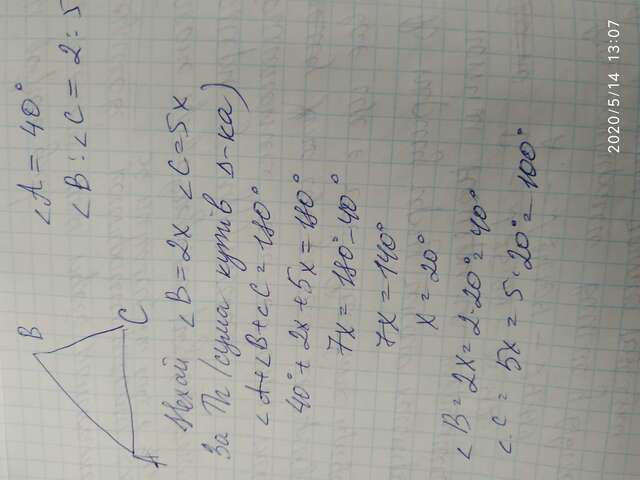 B
A
C
∠A = 40°
∠B : ∠C = 2 : 5
Нехай ∠B = 2x ∠C = 5x
За Th (сума кутів Δ-ка)
∠A + ∠B + ∠C = 180°
40° + 2x + 5x = 180°
7x = 180° - 40°
7x = 140°
x = 20°
∠B = 2x = 2·20° = 40°
∠C = 5x = 5·20° = 100°
2020/5/14 13:07